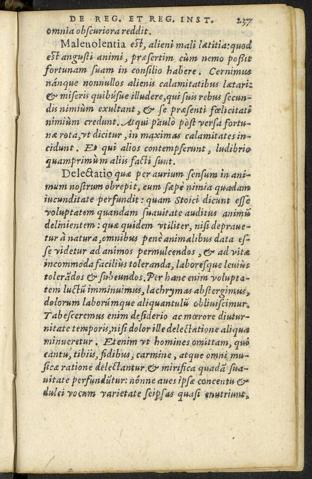 DE REG. ET REG. INST. 237
omnia obscuriora reddit.
Maleuolentia est, alieni mali lætitia: quod
est angusti animi, præsertim cùm nemo possit
fortunam suam in consilio habere. Cernimus
nánque nonnullos alienis calamitatibus lætari:
& miseris quibúsue illudere, qui suis rebus secun-
dis nimiùm exultant, & se præsenti fœlicitati
nimiùm credunt. Atqui paulò pòst versa fortu-
næ rota, vt dicitur, in maximas calamitates in-
cidunt. Et qui alios contempserunt, ludibrio
quamprimùm aliis facti sunt.
Delectatio quæ per aurium sensum in ani-
mum nostrum obrepit, eum sæpè nimia quadam
iucunditate perfundit: quam Stoici dicunt esse
voluptatem quandam suauitate auditus animũ
delinientem: qua quidem vtiliter, nisi depraue-
tur à natura, omnibus penè animalibus data es-
se videtur ad animos permulcendos, & ad vitæ
incommoda faciliùs toleranda, laborésque leuiùs
tolerãdos & subeundos. Per hanc enim volupta-
tem luctũ imminuimus, lachrymas abstergimus,
dolorum laborúmque aliquantulũ obliuiscimur.
Tabesceremus enim desiderio ac mœrore diutur-
nitate temporis, nisi dolor ille delectatione aliqua
minueretur. Etenim vt homines omittam, quó
cantu, tibiis, fidibus, carmine, atque omni mu-
sica ratione delectantur & mirifica quadã sua-
uitate perfundũtur: nónne aues ipsæ concentu &
dulci vocum varietate seipsas quasi enutriunt,